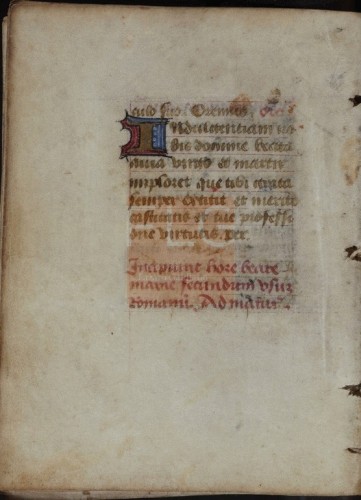 culo suo. Oremus.
Indulgentiam no
bis domine beata
maria virgo et martir
imploret que tibi grata
semper extitit et merito
castitatis et tue professi
one virtutis. Per.
Incipiunt hore beate
marie secundum usum
romanum. Ad matut.